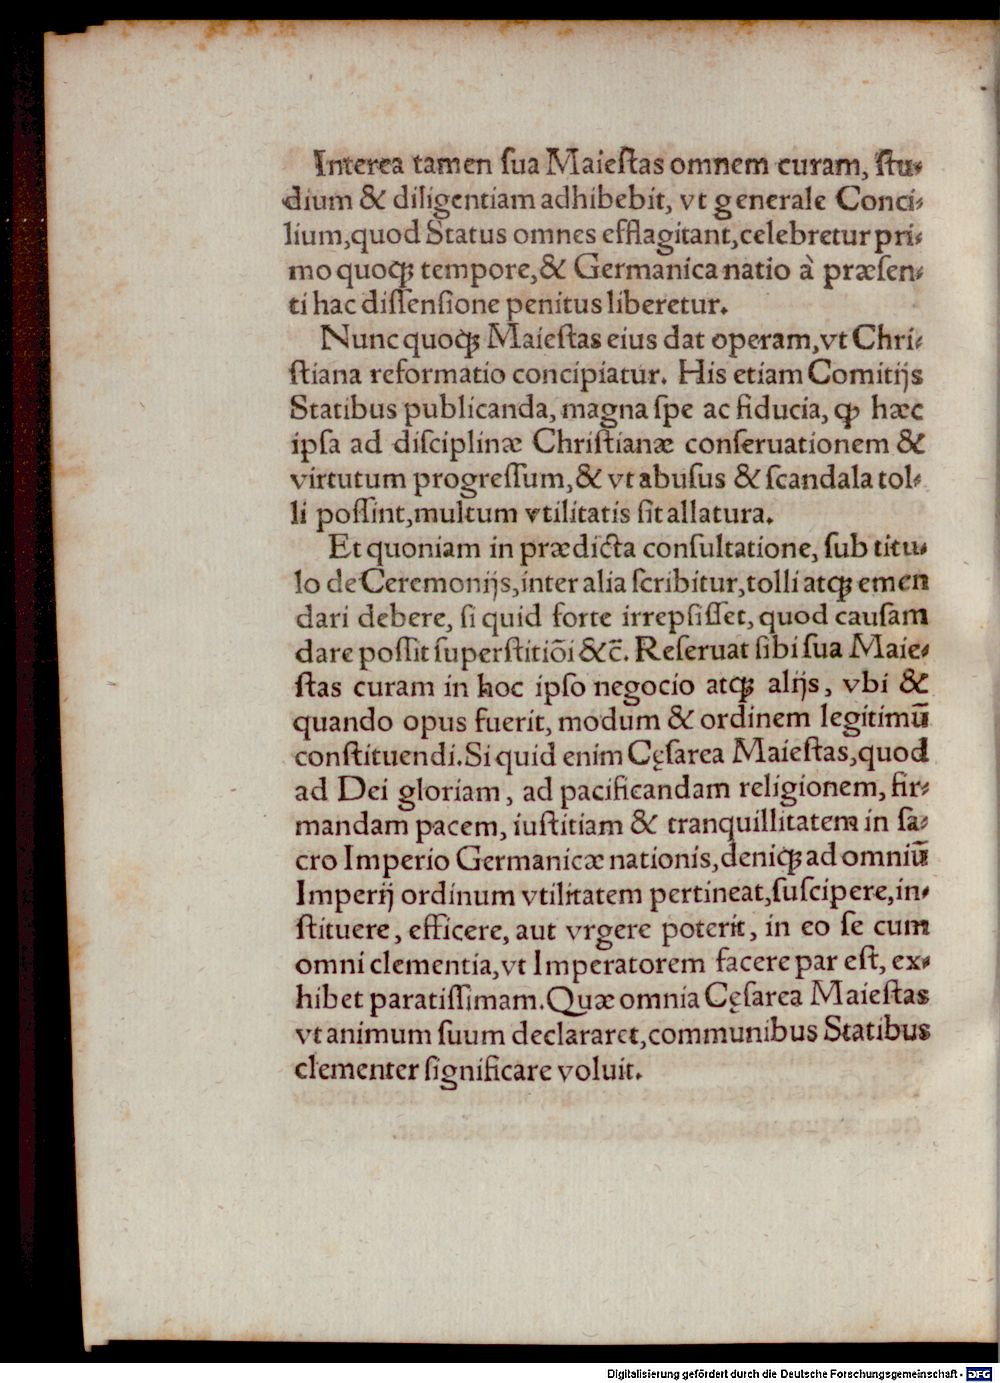 Interea tamen ſua Maieſtas omnem curam, ſtu⸗
dium & diligentiam adhibebit, vt generale Conci⸗
lium,quod Status omnes efflagitant,celebretur pri⸗
mo quoqꝫ tempore,& Germanica natio à præſen⸗
ti hac diſſenſione penitus liberetur.
Nunc quoqꝫ Maieſtas eius dat operam,vt Chri⸗
ſtiana reformatio concipiatur. His etiam Comitijs
Statibus publicanda, magna ſpe ac fiducia, ꝙ hæc
ipſa ad diſciplinæ Chriſtianæ conſeruationem &
virtutum progreſſum,& vt abuſus & ſcandala tol⸗
li poſſint,multum vtilitatis ſit allatura.
Et quoniam in prædicta conſultatione, ſub titu⸗
lo de Ceremonijs,inter alia ſcribitur,tolli atqꝫ emen
dari debere, ſi quid forte irrepſiſſet, quod cauſam
dare poſſit ſuperſtitiõi &c̃. Reſeruat ſibi ſua Maie⸗
ſtas curam in hoc ipſo negocio atqꝫ alijs, vbi &
quando opus fuerit, modum & ordinem legitimũ
conſtituendi. Si quid enim Cęſarea Maieſtas,quod
ad Dei gloriam, ad pacificandam religionem, fir⸗
mandam pacem, iuſtitiam & tranquillitatem in ſa⸗
cro Imperio Germanicæ nationis,deniqꝫ ad omniũ
Imperij ordinum vtilitatem pertineat,ſuſcipere,in⸗
ſtituere, efficere, aut vrgere poterit, in eo ſe cum
omni clementia,vt Imperatorem facere par eſt, ex⸗
hibet paratiſſimam. Quæ omnia Cęſarea Maieſtas
vt animum ſuum declararet,communibus Statibus
clementer ſignificare voluit.
Digitalisierung gefördert durch die Deutsche Forschungsgemeinschaft - DFG